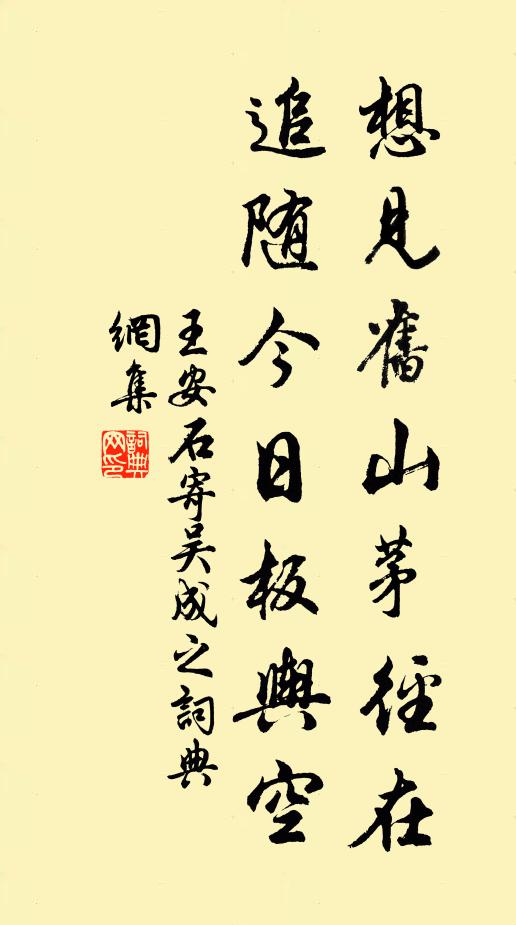 想見舊山茅徑在
追随今日板輿空
王安石寄吴成之詞典
網集
詞典
网印